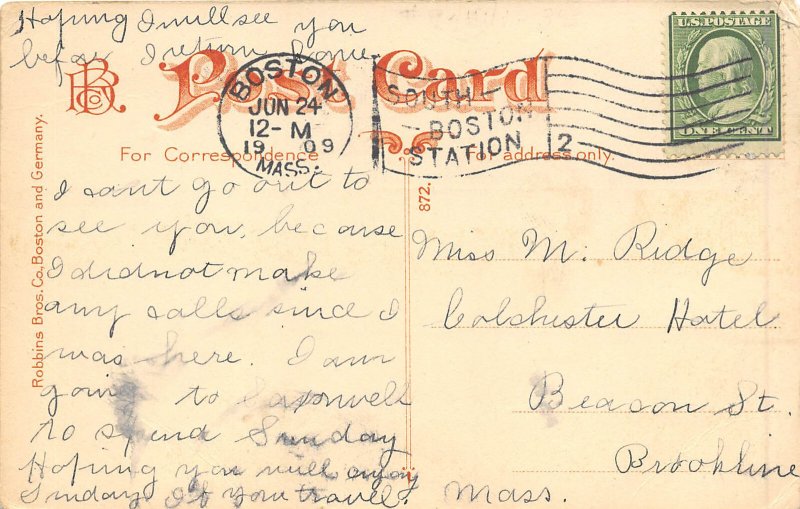 Hoping I will see you
before I return home
Post Card
BOSTON
JUN 24
12-M
1909
MASS.
SOUTH
BOSTON
STATION
2
U.S. POSTAGE
ONE CENT
For Correspondence
For address only.
Robbins Bros. Co., Boston and Germany.
872.
I cant go out to
see you, because
I did not make
any calls since I
was here. I am
going to
to spend Sunday
Hoping you will enjoy
Sunday. If you travel.
Miss M. Ridge
Colchester Hotel
Beacon St.
Brookline
Mass.